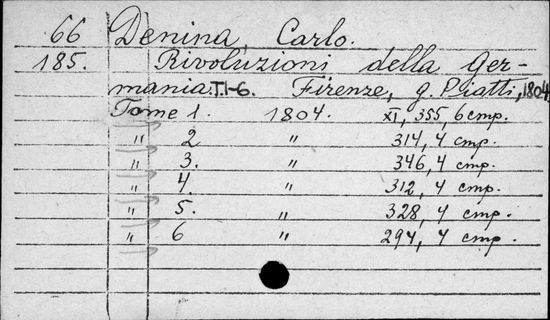 66 Denina, Carlo.
185. Rivoluzioni della Ger-
mania. T.1-6. Firenze, g. Piatti, 1804
Tome 1. 1804. XI, 355, 6 стр.
" 2 " 314, 4 стр.
" 3. " 346, 4 стр.
" 4. " 312, 4 стр.
" 5. " 328, 4 стр.
" 6 " 294, 4 стр.